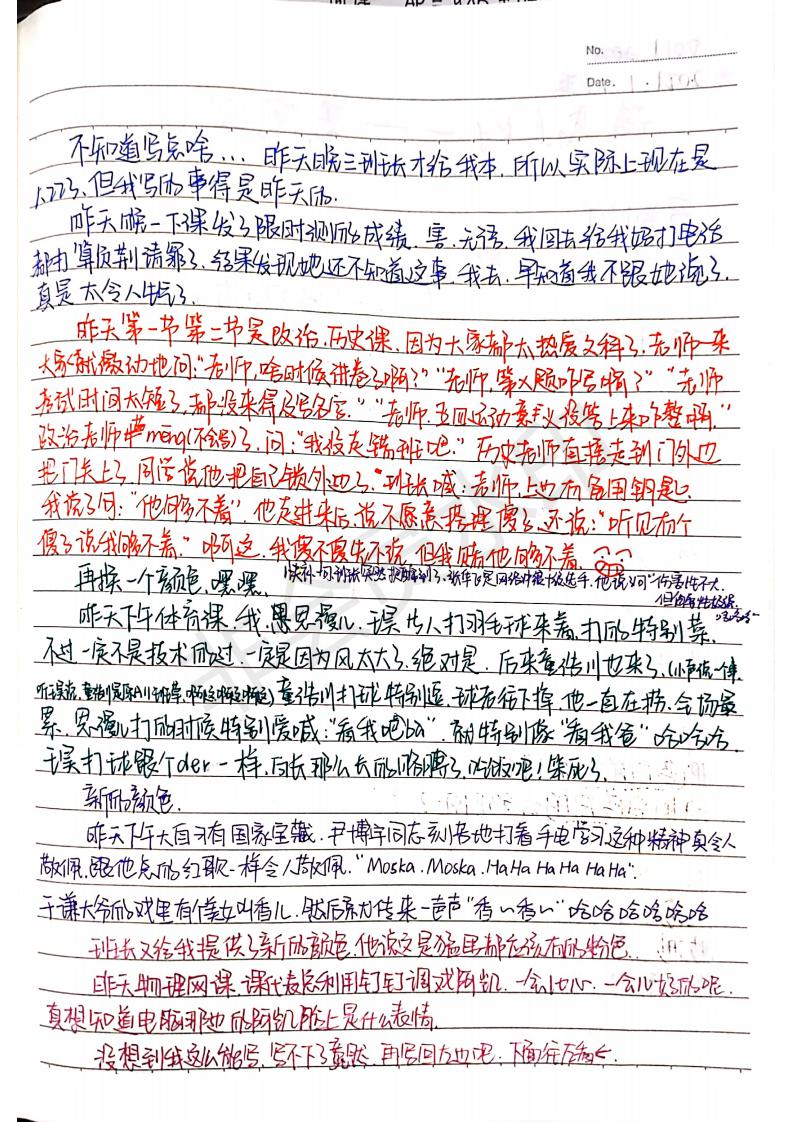 No. 11
Date. 1.
不知道写点啥... 昨天晚三班长才给我本, 所以实际上现在是
1.223, 但我写的事得是昨天的.
昨天晚一下课发了限时测的成绩. 害, 无语. 我回去给我妈打电话
都打算负荆请罪了, 结果发现她还不知道这事. 我去, 早知道我不跟她说了,
真是太令人生气了.
昨天第一节第二节是政治, 历史课, 因为大家都太热爱文科了, 老师一来
大家就激动地问:"老师, 啥时候讲卷了啊?" "老师, 第X题咋写啊?" "老师
考试时间太短了, 都没来得及写名字." "老师, 五四运动意义没答上来咋整啊."
政治老师 meng(不会写)了, 问:"我没走错班吧." 历史老师直接走到门外也
把门关上了, 同学说他把自己锁外边了. 班长喊: 老师, 上边有备用钥匙.
我说了句:"他够不着", 他走进来后, 说不愿意搭理傻子, 还说:"听见有个
傻子说我够不着." 啊这, 我傻不傻先不说, 但我贼他够不着.
再换一个颜色, 嘿嘿.
伤害性不大,
昨天下午体育课, 我, 思强儿, 王昊 打羽毛球来着, 打的特别菜.
不过一定不是技术的过, 一定是因为风太大了, 绝对是. 后来董浩川也来了, (小声说一嘴
董浩川打球特别逗, 球老往下掉, 他一直在捞, 全场最
累. 思强儿打的时候特别爱喊:"看我吧ba", 就特别像"看我爸"哈哈哈.
王昊打球跟个der一样, 白长那么长的胳膊了, 吹牛吧! 笑死了.
新的颜色.
昨天下午大自习有国家宝藏. 尹博宇同志刻苦地打着手电学习这种精神真令人
敬佩, 跟他点的红歌一样令人敬佩. "Moska. Moska. HaHa HaHa HaHa".
于谦大爷的戏里有侍女叫香儿, 然后旁边传来一声声"香~香~" 哈哈哈哈哈哈
班长又给我提供了新的颜色, 他说这是猛男都应该有的粉色.
昨天物理网课, 课代表总利用钉钉调戏阿凯. 一会儿比心, 一会儿好的呢.
真想知道电脑那边的阿凯脸上是什么表情.
没想到我这么能写, 写不下了竟然, 再写回左边吧, 下面往左看←.